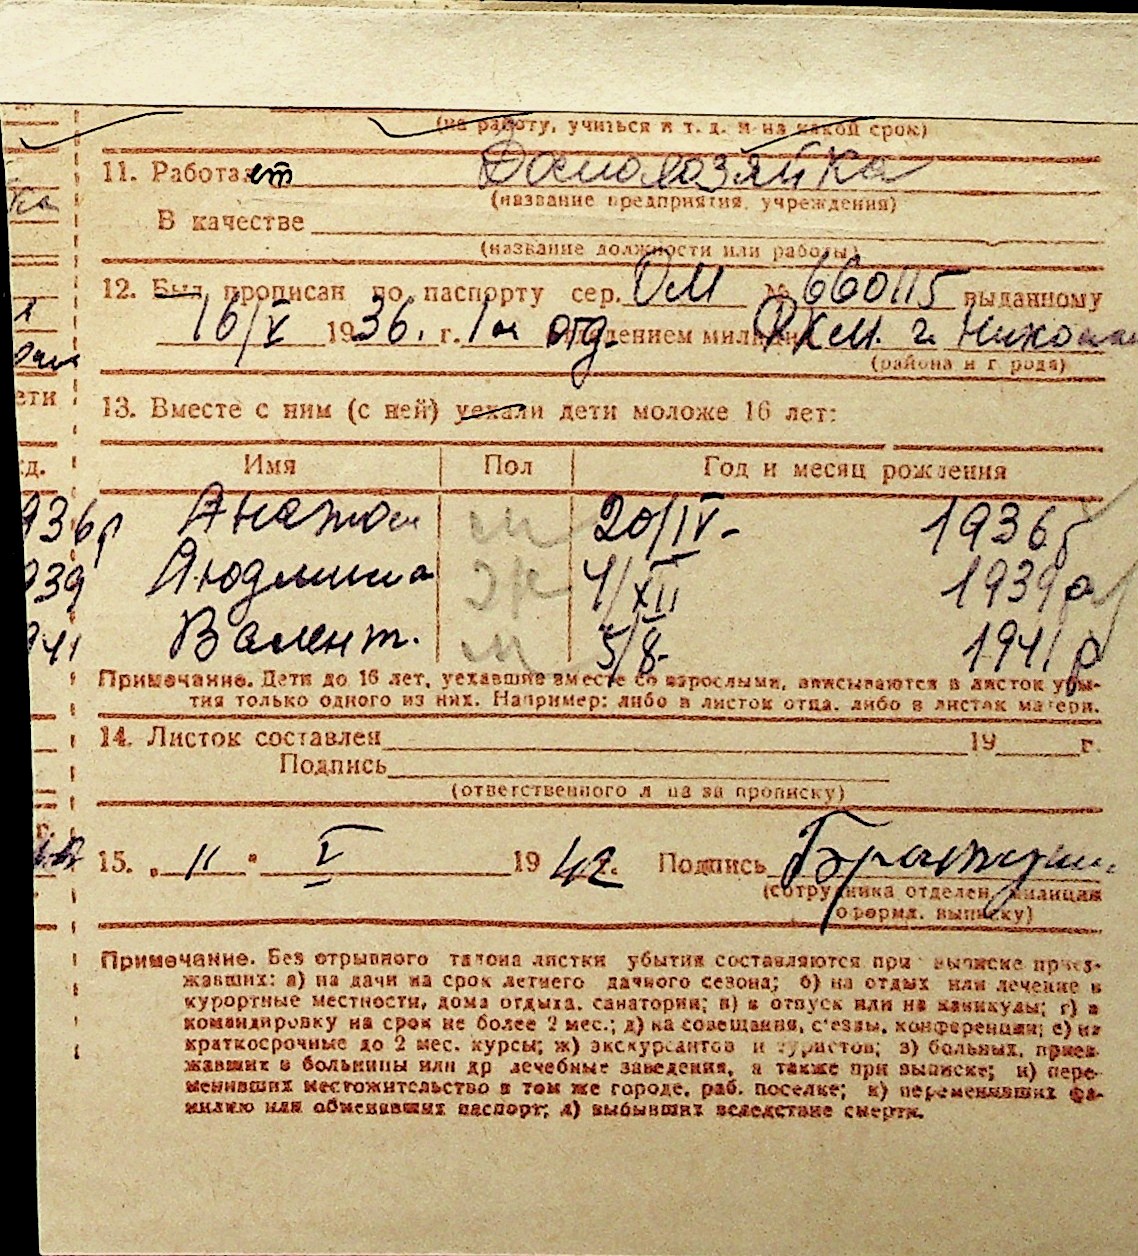 (на работу, учиться и т. д. и на какой срок)
11. Работает Домохозяйка
(название предприятия, учреждения)
В качестве
(название должности или работы)
12. Был прописан по паспорту сер. ОМ № 660115 выданному
16/V 1936. г. 1м отд. отделением милиции РКМ. г. Никола
(района и города)
13. Вместе с ним (с ней) уехали дети моложе 16 лет:
Имя Пол Год и месяц рождения
936г Анатол м 20/IV- 1936г
939 Людмила ж 4/XII 1939г
941 Валент. м 5/8- 1941г
Примечание. Дети до 16 лет, уехавшие вместе со взрослыми, вписываются в листок убы-
тия только одного из них. Например: либо в листок отца, либо в листок матери.
14. Листок составлен 19 г.
Подпись
(ответственного лица за прописку)
15. „ 11 " V 1942 г. Подпись
(сотрудника отделен. милиции
оформл. выписку)
Примечание. Без отрывного талона листки убытия составляются при выписке приез-
жавших: а) на дачи на срок летнего дачного сезона; б) на отдых или лечение в
курортные местности, дома отдыха, санатории; в) в отпуск или на каникулы; г) в
командировку на срок не более 2 мес.; д) на совещания, с'езды, конференции; е) на
краткосрочные до 2 мес. курсы; ж) экскурсантов и туристов; з) больных, приез-
жавших в больницы или др лечебные заведения, а также при выписке; и) пере-
менивших местожительство в том же городе, раб. поселке; к) переменивших фа-
милию или обменявших паспорт; л) выбывших вследствие смерти.